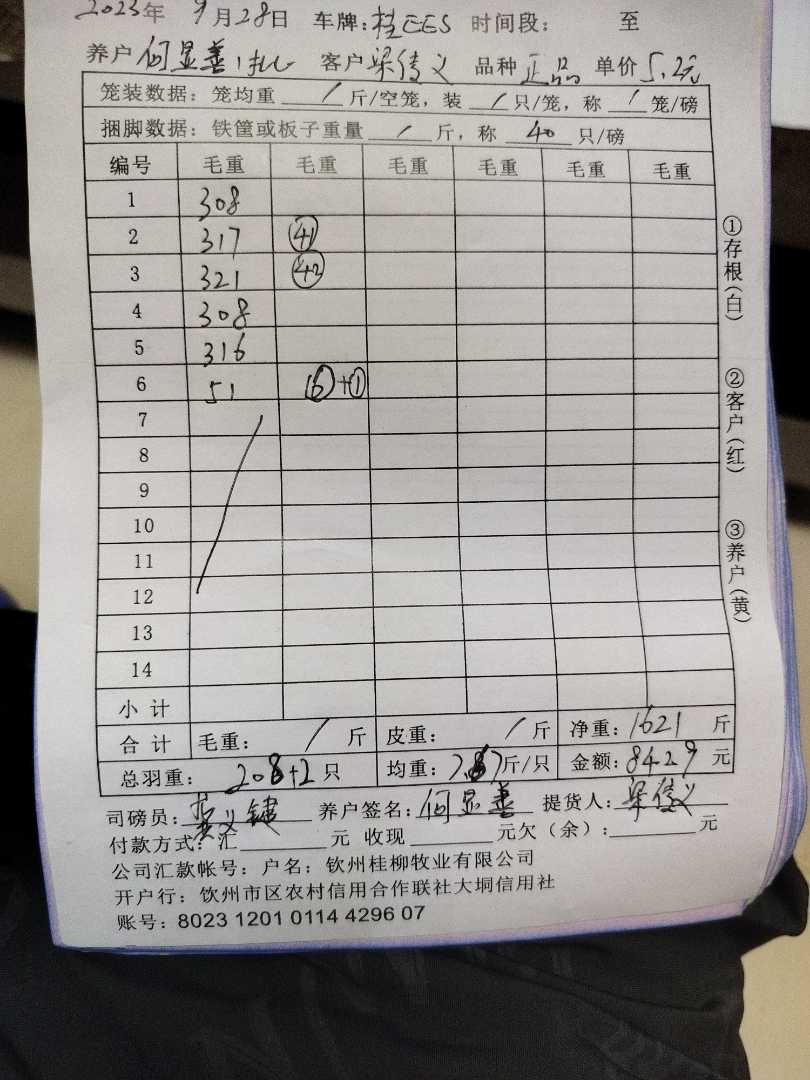 2023年 9月28日 车牌:桂EES 时间段: 至
养户 何显善1批 客户 梁传义 品种 正品 单价 5.2元
笼装数据:笼均重 / 斤/空笼,装 / 只/笼,称 / 笼/磅
捆脚数据:铁筐或板子重量 / 斤,称 40 只/磅
编号 毛重 毛重 毛重 毛重 毛重 毛重
1 308
2 317 41
3 321 42
4 308
5 316
6 51 6+1
7
8
9
10
11
12
13
14
小计
合计 毛重: / 斤 皮重: / 斤 净重:1621 斤
总羽重: 208+2 只 均重:7.87斤/只 金额:8429 元
司磅员: 义键 养户签名:何显善 提货人:梁传义
付款方式:汇 元 收现 元欠(余): 元
公司汇款帐号:户名:钦州桂柳牧业有限公司
开户行:钦州市区农村信用合作联社大垌信用社
账号:8023 1201 0114 4296 07
①存根(白)
②客户(红)
③养户(黄)